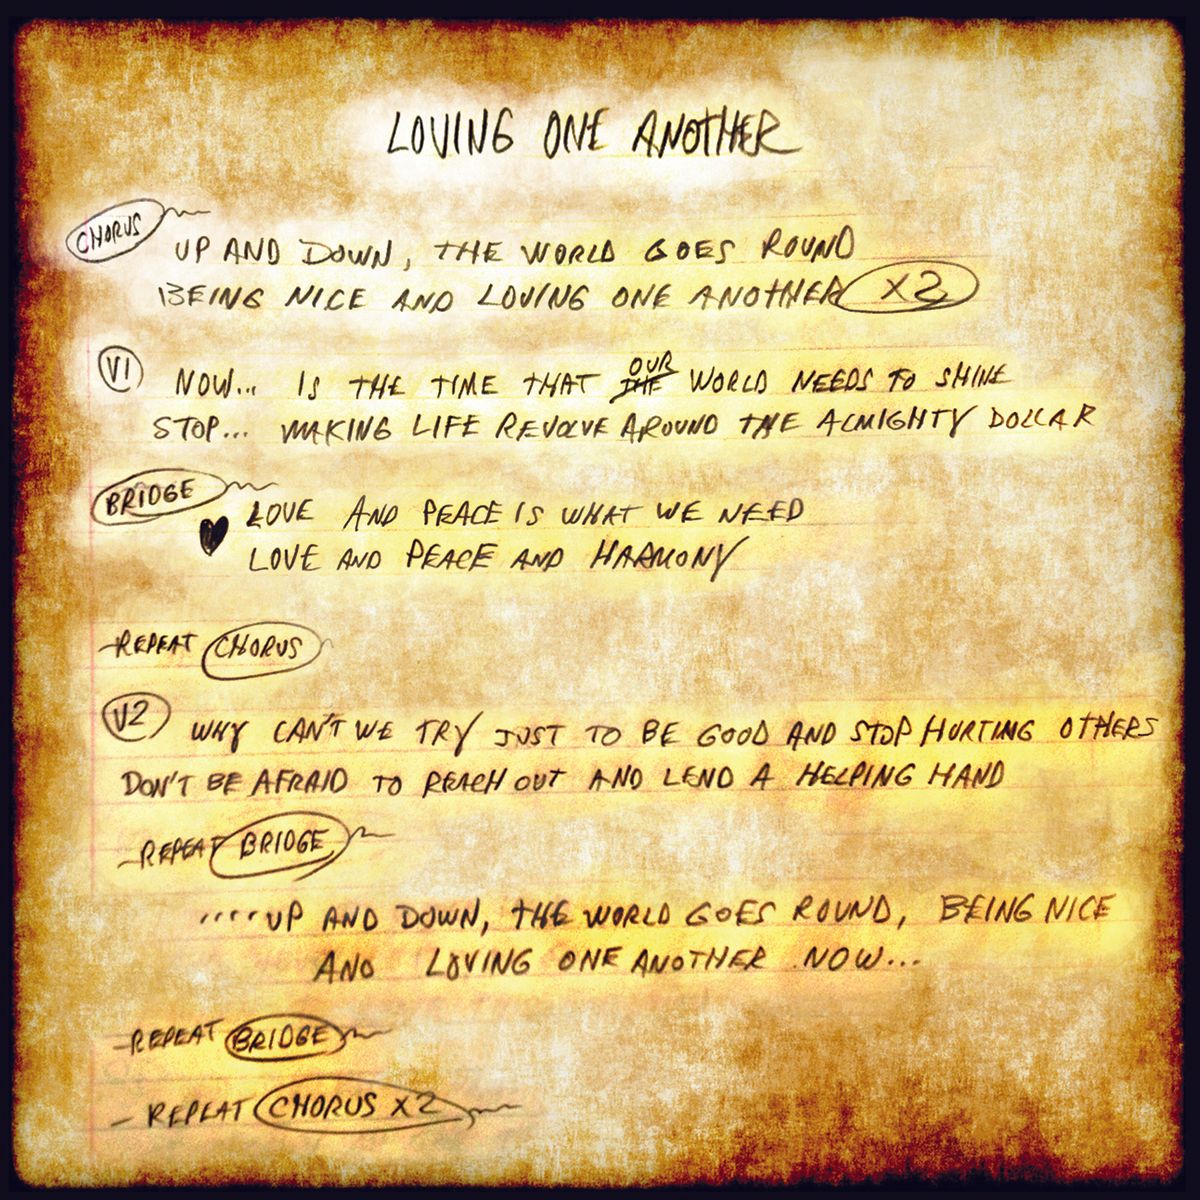 LOVING ONE ANOTHER
CHORUS
UP AND DOWN, THE WORLD GOES ROUND
BEING NICE AND LOVING ONE ANOTHER X2
V1 NOW... IS THE TIME THAT THE OUR WORLD NEEDS TO SHINE
STOP... MAKING LIFE REVOLVE AROUND THE ALMIGHTY DOLLAR
BRIDGE
♥ LOVE AND PEACE IS WHAT WE NEED
LOVE AND PEACE AND HARMONY
-REPEAT CHORUS
V2 WHY CAN'T WE TRY JUST TO BE GOOD AND STOP HURTING OTHERS
DON'T BE AFRAID TO REACH OUT AND LEND A HELPING HAND
-REPEAT BRIDGE
....UP AND DOWN, THE WORLD GOES ROUND, BEING NICE
AND LOVING ONE ANOTHER NOW...
-REPEAT BRIDGE
- REPEAT CHORUS X2